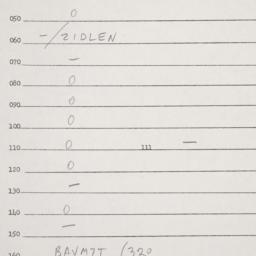 050 0
060 -/ZIDLEN
070 -
080 0
090 0
100 0
110 0 111 -
120 0
130 -
140 0
150 -
160 BAVM7T (320